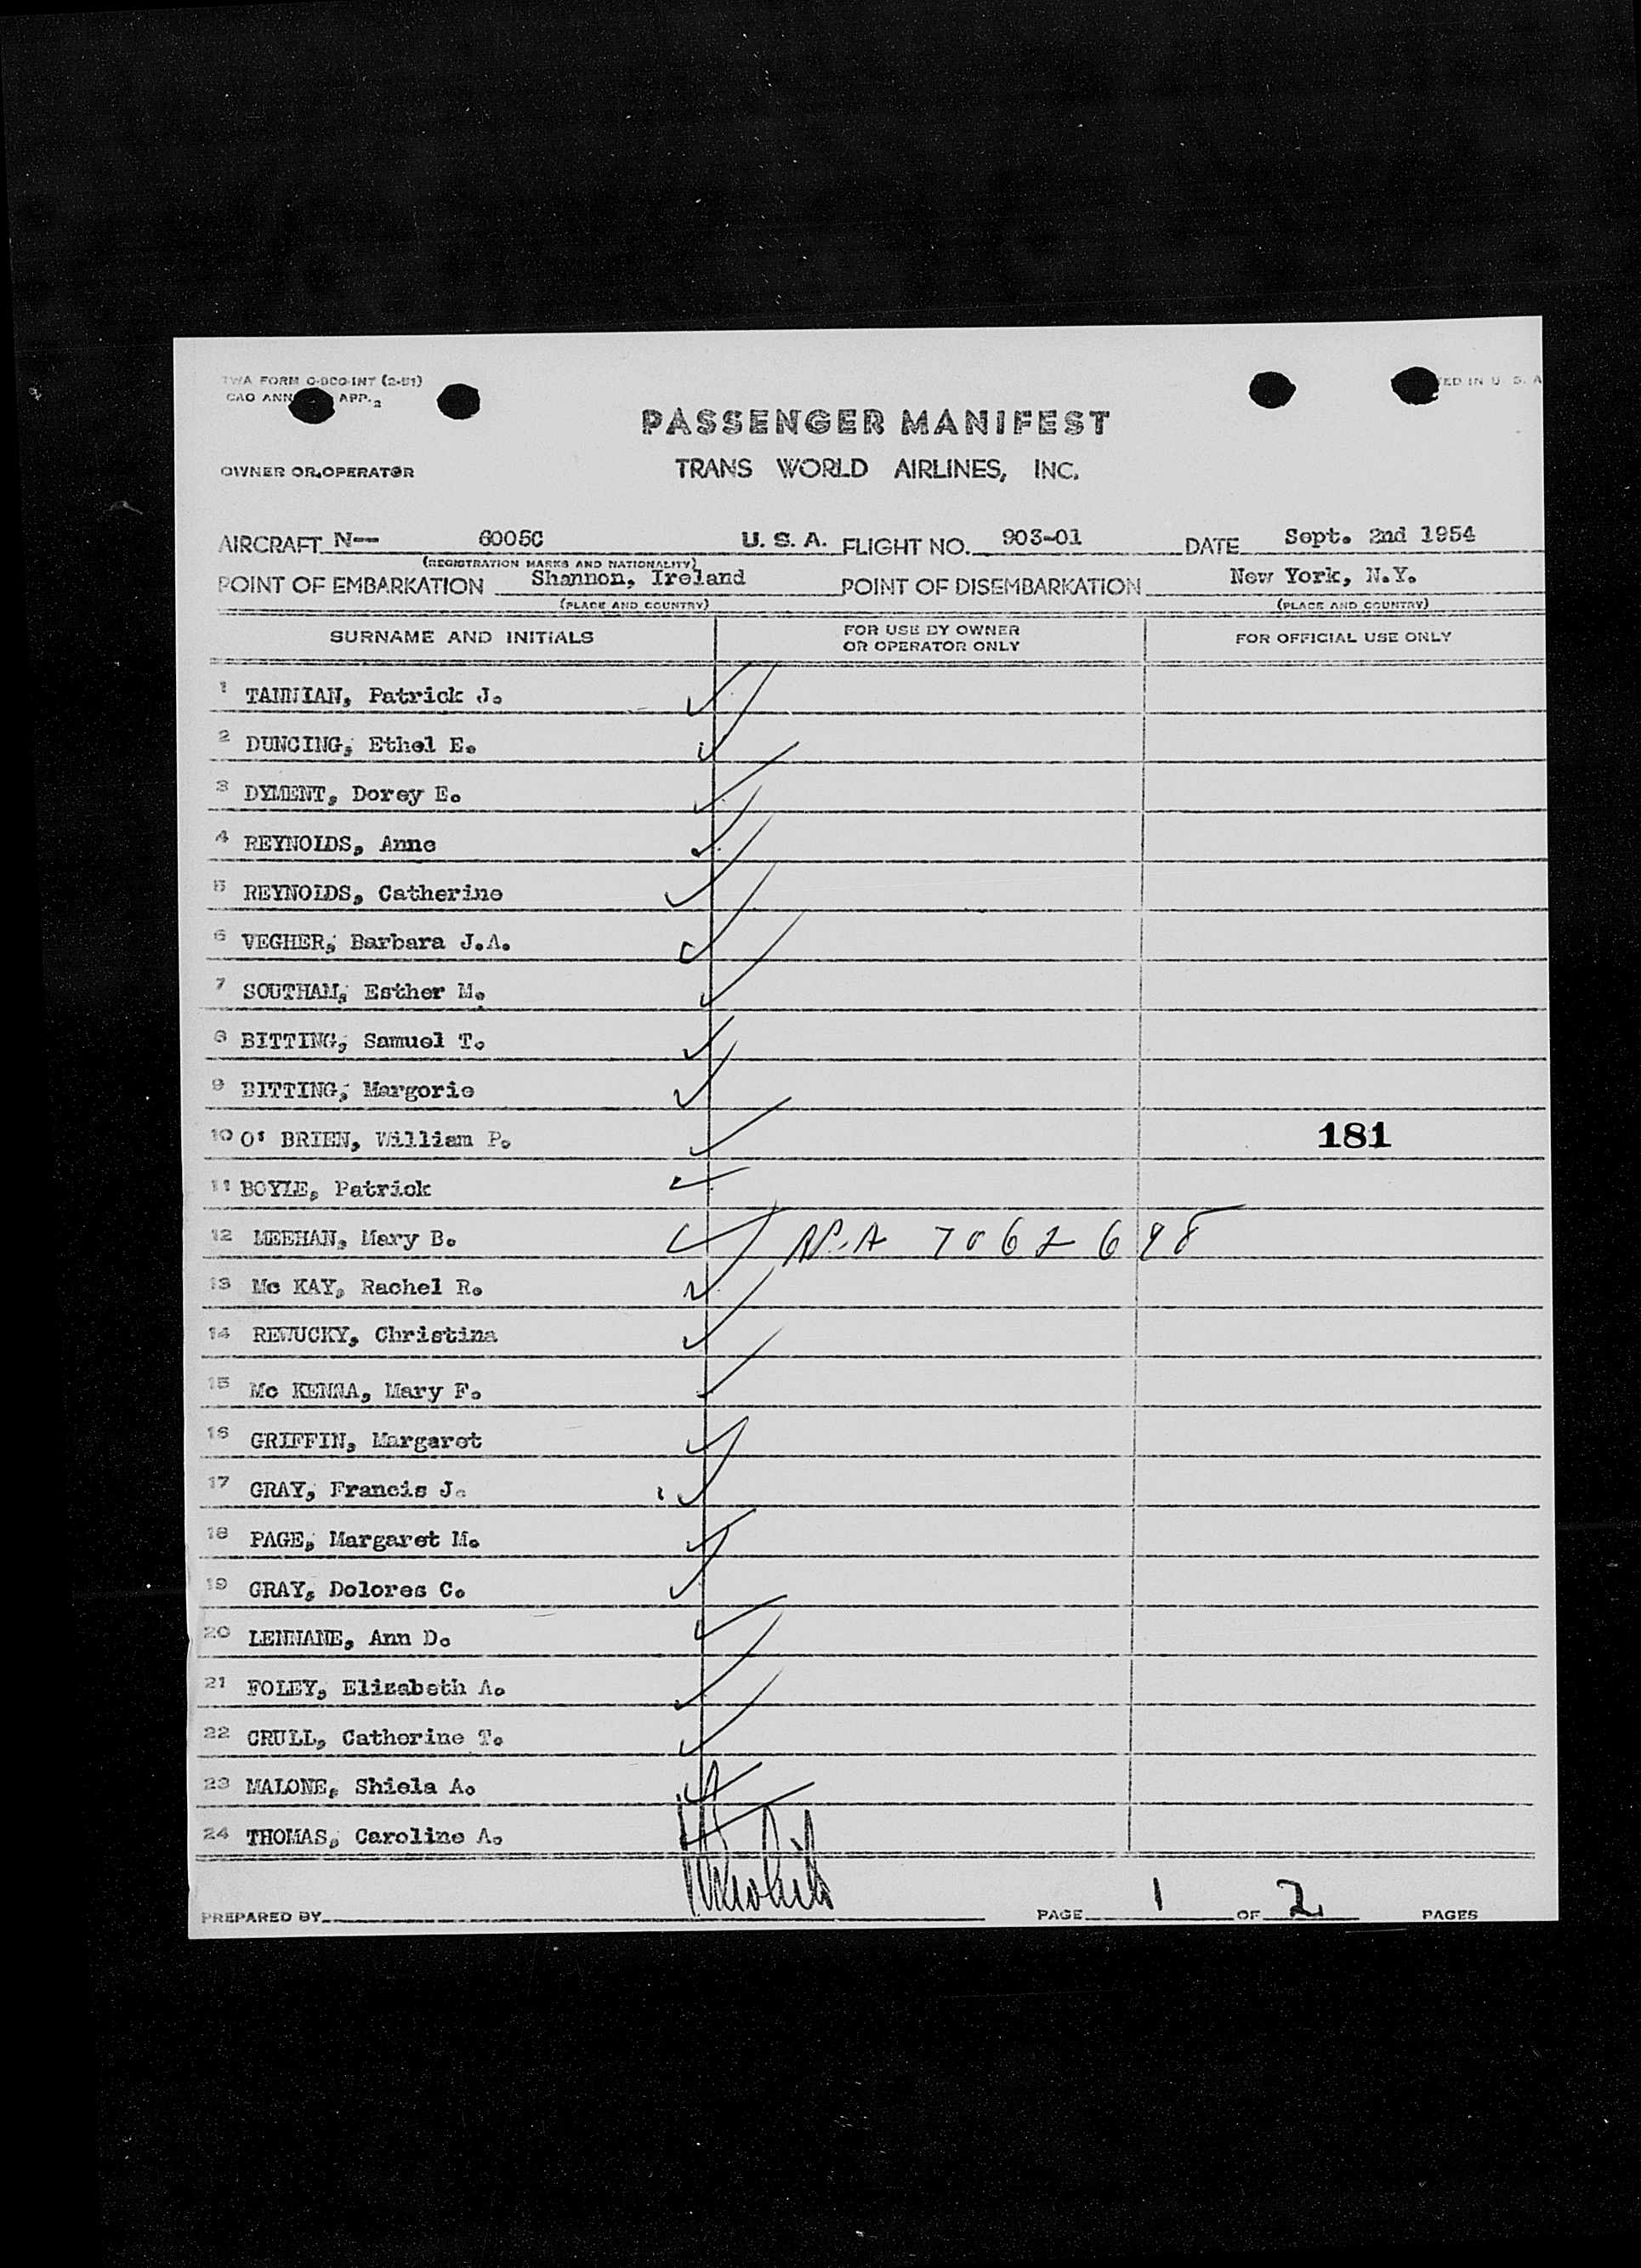 TWA FORM O-DCO-INT (2-51)
CAO ANN APP. 2
ED IN U. S. A
PASSENGER MANIFEST
OWNER OR OPERATOR TRANS WORLD AIRLINES, INC.
AIRCRAFT N-- 6005C U. S. A. FLIGHT NO. 903-01 DATE Sept. 2nd 1954
(REGISTRATION MARKS AND NATIONALITY)
POINT OF EMBARKATION Shannon, Ireland POINT OF DISEMBARKATION New York, N.Y.
(PLACE AND COUNTRY) (PLACE AND COUNTRY)
SURNAME AND INITIALS FOR USE BY OWNER OR OPERATOR ONLY FOR OFFICIAL USE ONLY
1 TANNIAN, Patrick J.
2 DUNCING, Ethel E.
3 DYMENT, Dorey E.
4 REYNOLDS, Anne
5 REYNOLDS, Catherine
6 VEGHER, Barbara J.A.
7 SOUTHAM, Esther M.
8 BITTING, Samuel T.
9 BITTING, Margorie
10 O' BRIEN, William P. 181
11 BOYLE, Patrick
12 MEEHAN, Mary B. 7062698
13 Mc KAY, Rachel R.
14 REWUCKY, Christina
15 Mc KENNA, Mary F.
16 GRIFFIN, Margaret
17 GRAY, Francis J.
18 PAGE, Margaret M.
19 GRAY, Dolores C.
20 LENNANE, Ann D.
21 FOLEY, Elizabeth A.
22 CRULL, Catherine T.
23 MALONE, Shiela A.
24 THOMAS, Caroline A.
PREPARED BY PAGE 1 OF 2 PAGES